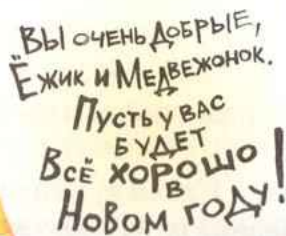 Вы очень добрые,
Ёжик и Медвежонок.
Пусть у вас
будет
всё хорошо
в
Новом году!